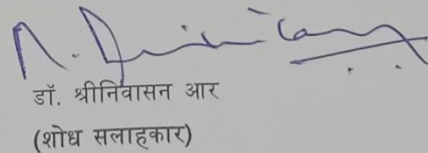 डॉ. श्रीनिवासन आर
(शोध सलाहकार)